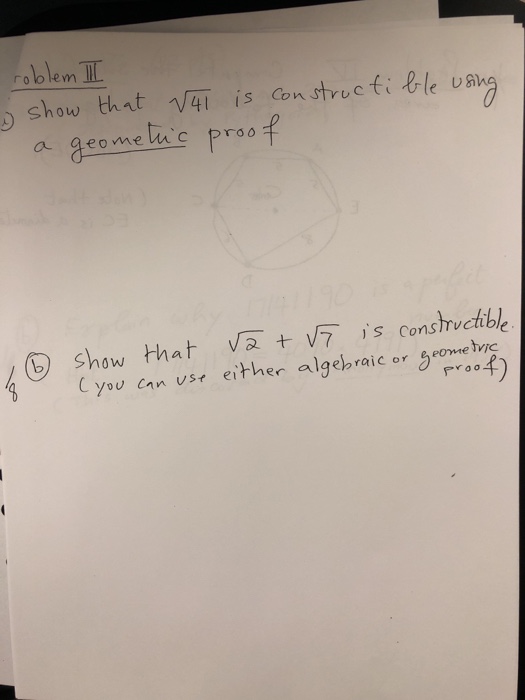 roblem III
a) show that √41 is constructible using
a geometric proof
(b) show that √2 + √7 is constructible.
/8 (you can use either algebraic or geometric
proof)